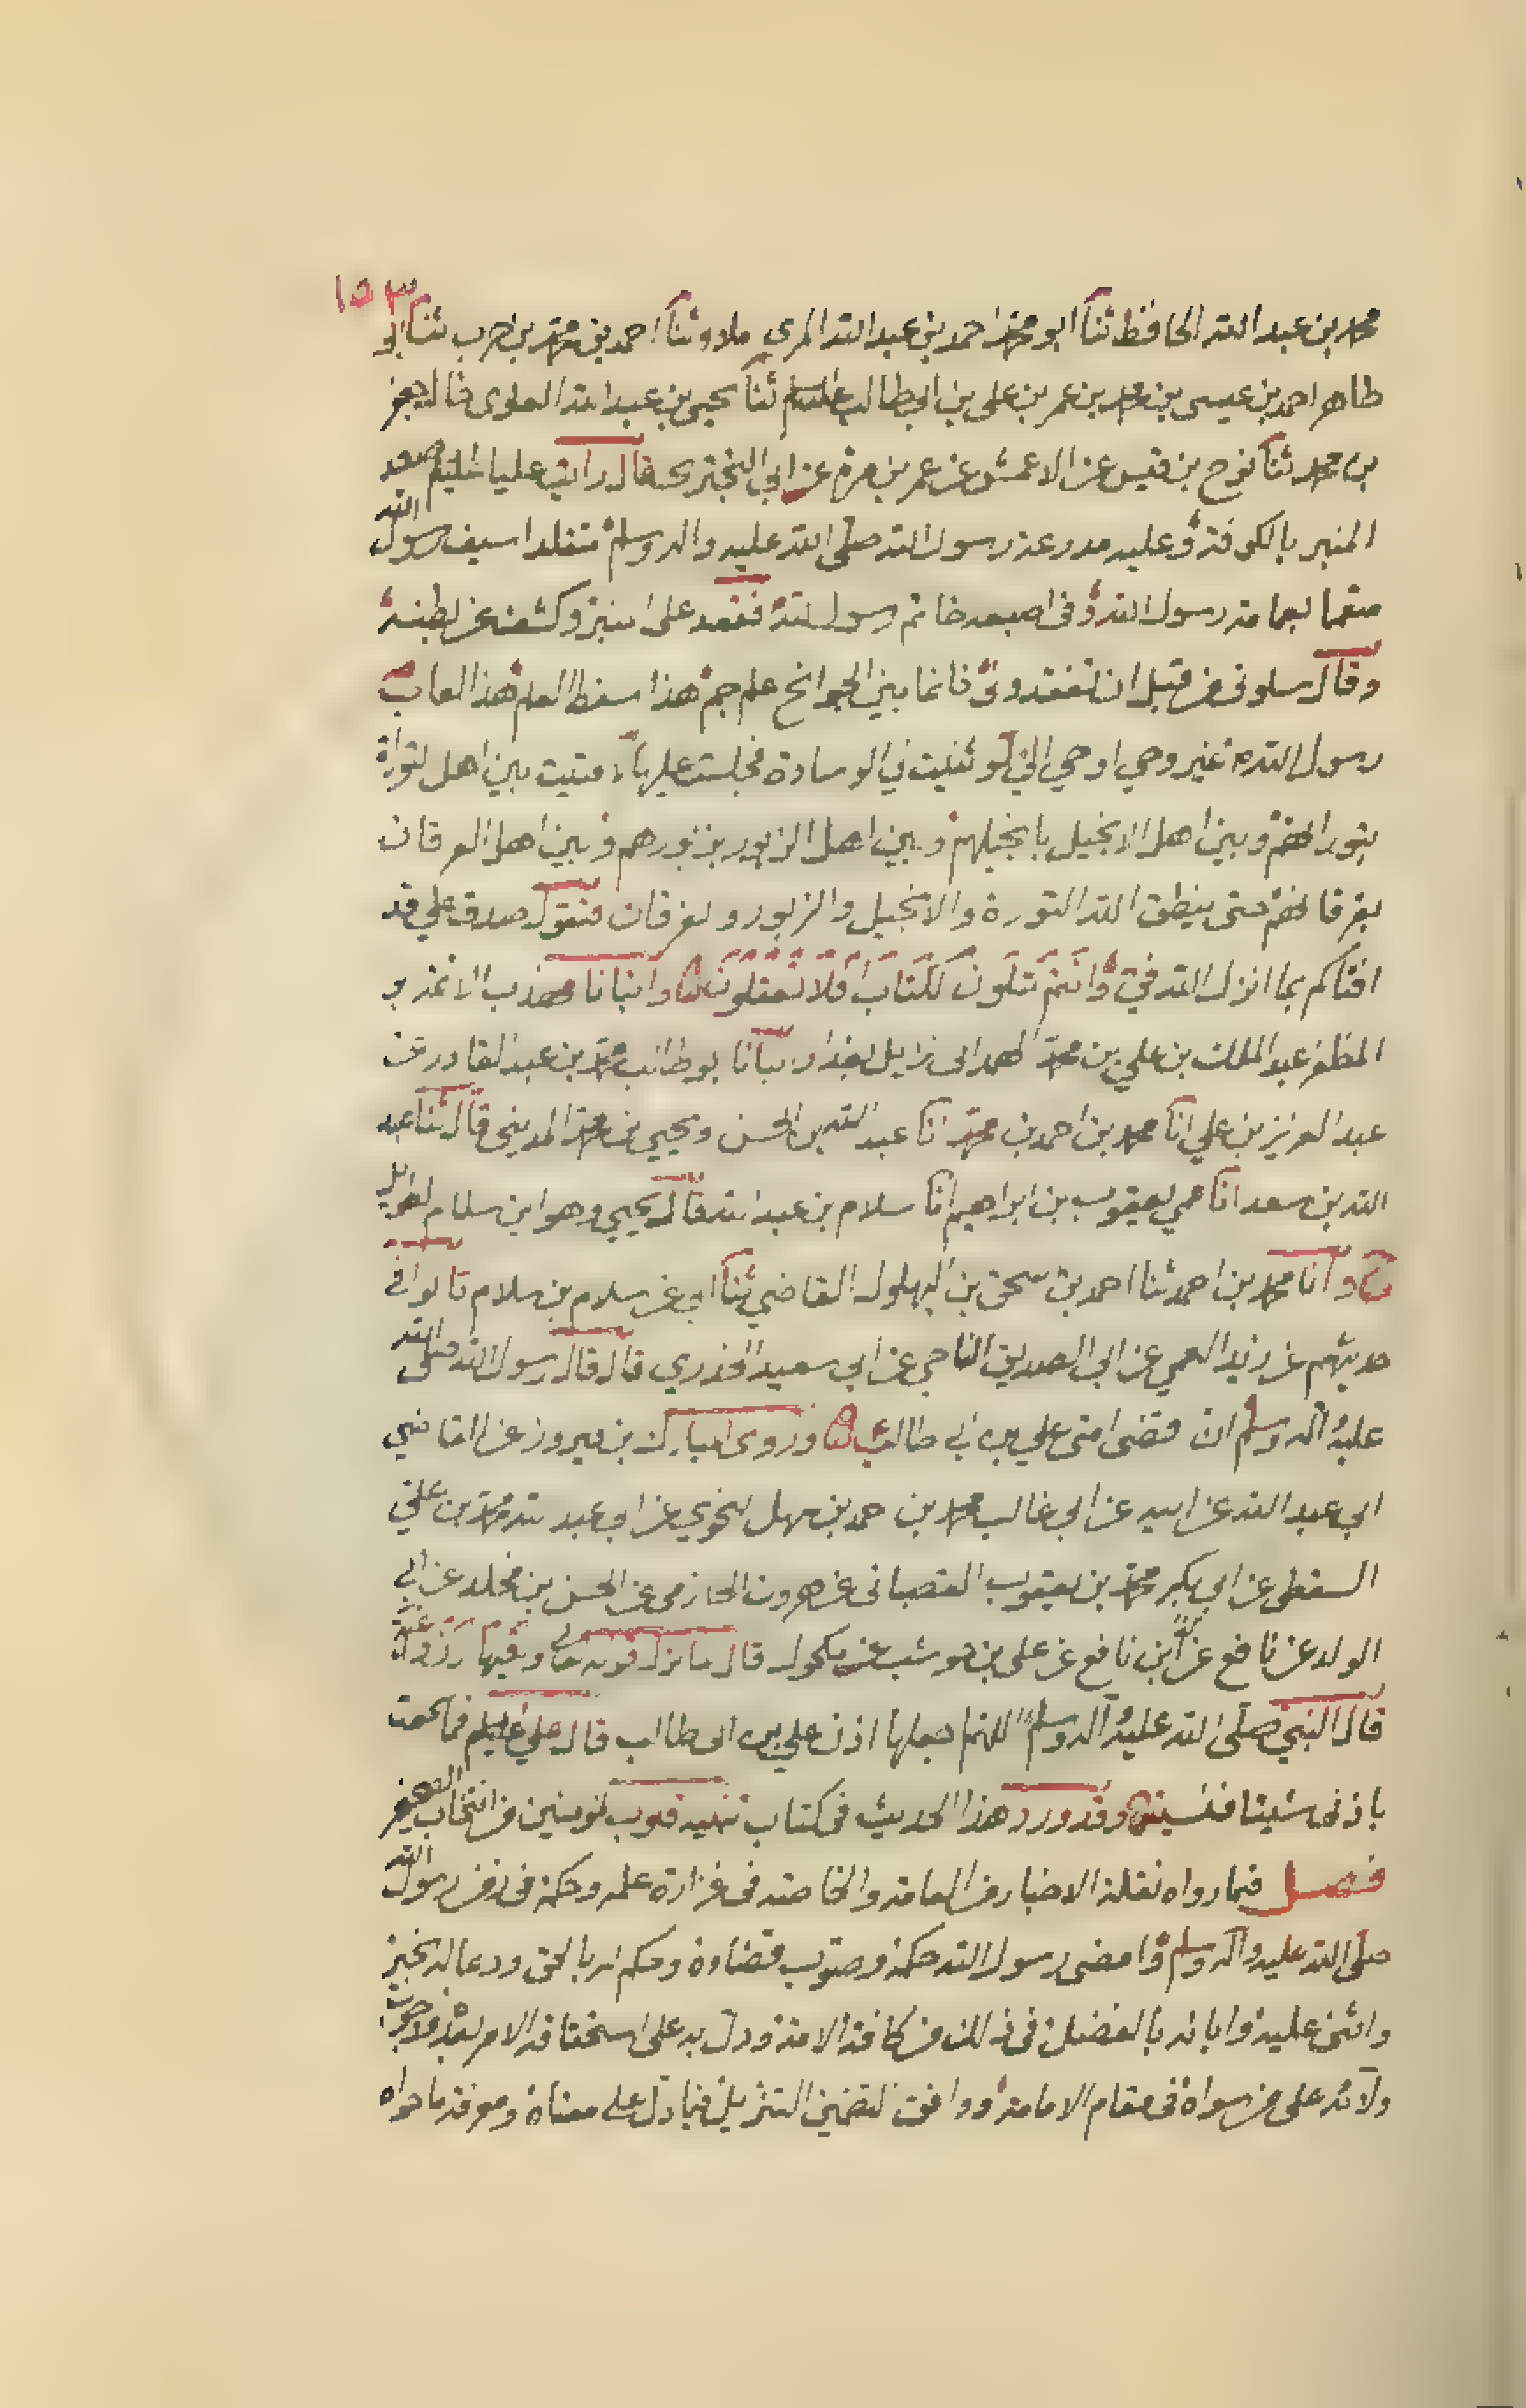 ١٥٣
محمد بن عبد الله الحافظ ثنا ابو محمد احمد بن عبد الله المزي ملاء وثنا احمد بن محمد بن حرب ثنا ابو
طاهر احمد بن عيسى بن محمد بن عمر بن على بن ابى طالب عليه السلم ثنا يحيى بن عبد الله العلوى خال جعفر
بن محمد ثنا نوح بن قيس عن الاعمش عن عمر بن مرة عن ابي البختري قال رايت عليا عليه السلم صعد
المنبر بالكوفة وعليه مدرعة رسول الله صلى الله عليه واله وسلم متقلدا سيف رسول الله
متعمما بعمامة رسول الله وفى اصبعه خاتم رسول الله فقعد على المنبر وكشف عن بطنه
وقال سلونى من قبل ان تفقدونى فانما بين الجوانح علم جم هذا سفط العلم هذا لعاب
رسول الله من غير وحي اوحي الي لو ثنيت لي الوسادة فجلست عليها لافتيت بين اهل التوراة
بتوراتهم وبين اهل الانجيل بانجيلهم وبين اهل الزبور بزبورهم وبين اهل الفرقان
بفرقانهم حتى ينطق الله التورة والانجيل والزبور والفرقان فتقول صدق علي قد
افتاكم بما انزل الله في وانتم تتلون الكتاب افلا تعقلون وانبانا مهذب الائمة ابو
المظفر عبد الملك بن علي بن محمد الهمدانى نزيل بغداد انبانا ابو طالب محمد بن عبد القادر عن
عبد العزيز بن علي انا محمد بن احمد بن محمد انا عبد الله بن الحسن ويحيي بن محمد المدينى قال ثنا عبد
الله بن سعد انا عمي يعقوب بن ابراهيم انا سلام بن عبد الله قال يحيي وهو ابن سلام الطويل
وانا محمد بن احمد ثنا احمد بن اسحق بن البهلول القاضي ثنا ابي عن سلام بن سلام قالوا في
حديثهم عن زيد العمي عن ابى الصديق الناجي عن ابي سعيد الخدري قال قال رسول الله صلى الله
عليه وآله وسلم ان اقضى امتى علي بن ابى طالب وروى المبارك بن فيروز عن القاضي
ابي عبد الله عن ابيه عن ابي غالب محمد بن احمد بن سهل النحوي عن ابي عبد الله محمد بن علي
السقطى عن ابي بكر محمد بن يعقوب القصبانى عن هرون الحازمى عن الحسن بن مخلد عن ابي
الولد عن نافع عن ابن نافع عن على بن حوشب عن مكحول قال لما نزل قوله تعالى وتعيها اذن واعية
قال النبي صلى الله عليه وآله وسلم اللهم اجعلها اذن علي بن ابى طالب قال علي عليه السلم فما سمعت
باذنى شيئا فنسيته وقد ورد هذا الحديث فى كتاب تنبيه قلوب المومنين من انتخاب
فصل فيما رواه نقلة الاخبار من العامة والخاصة فى غزارة علمه وحكمه فى زمن رسول الله
صلى الله عليه وآله وسلم وامضى رسول الله حكمه وصوب قضاوه وحكم له بالحق ودعا له بخير
واثنى عليه وابانه بالفضل فى ذلك من كافة الامة ودل به على استحقاقه الامر بعده ووجوب
ولائه على من سواه فى مقام الامامة ووافق تضمن التنزيل فيما دل على معناه ومعرفة ما حواه